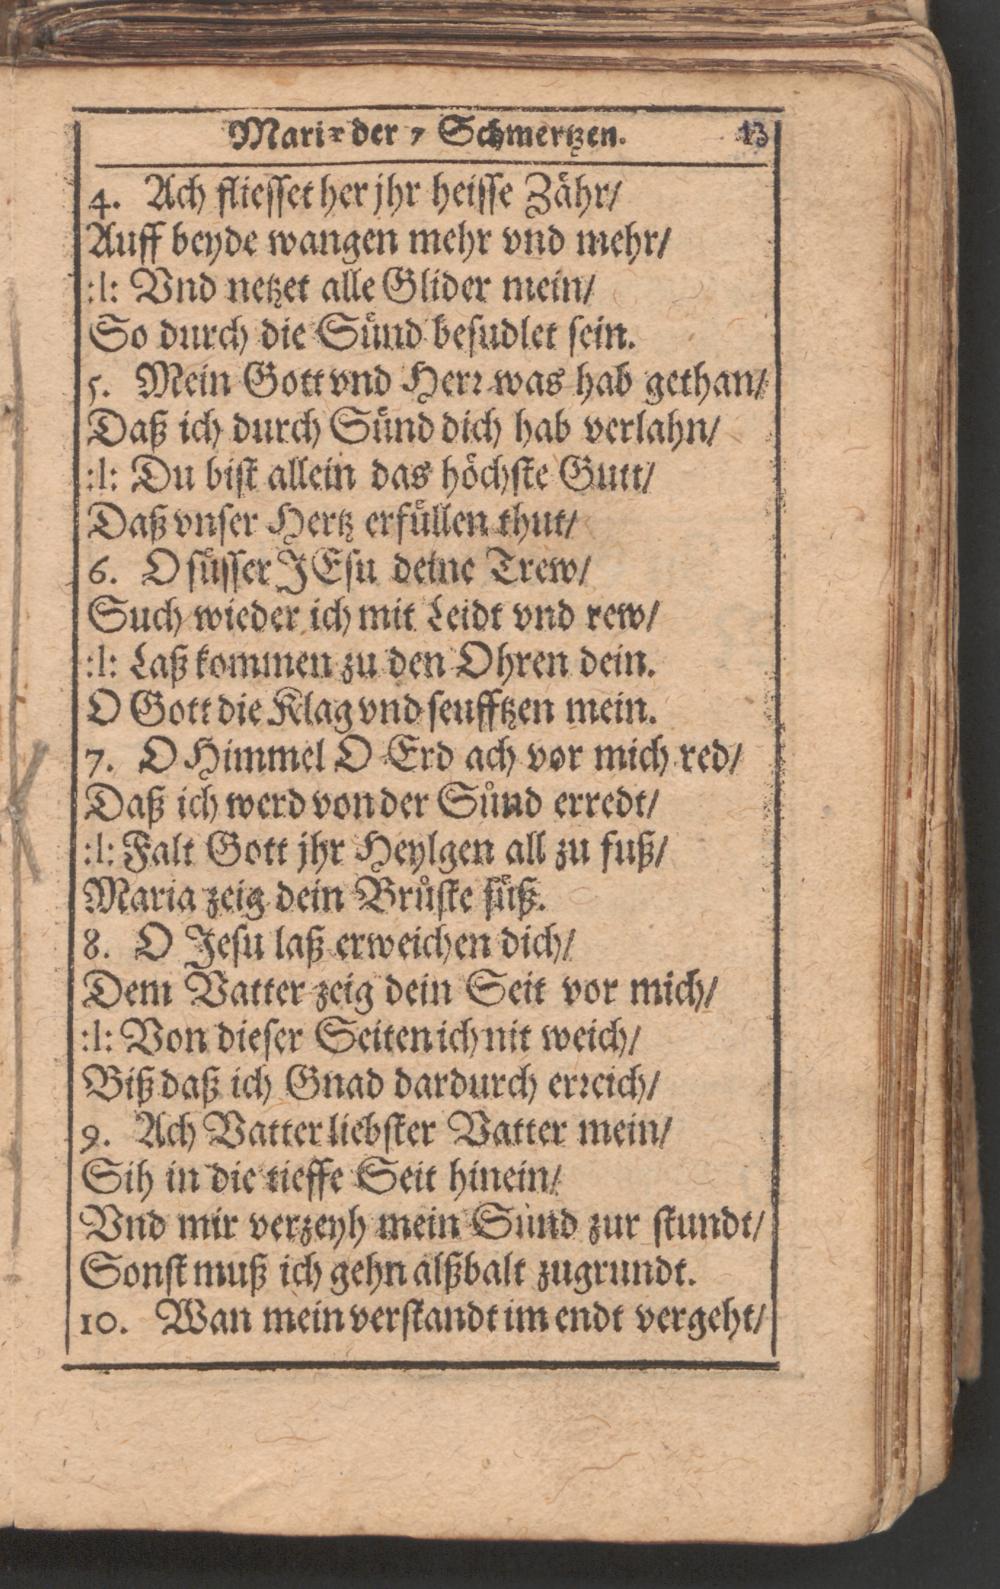 Mariæ der 7 Schmertzen. 13
4. Ach fliesset her jhr heisse Zähr/
Auff beyde wangen mehr vnd mehr/
:l: Vnd netzet alle Glider mein/
So durch die Sünd besudlet sein.
5. Mein Gott vnd Herr was hab gethan/
Daß ich durch Sünd dich hab verlahn/
:l: Du bist allein das höchste Gutt/
Daß vnser Hertz erfüllen thut/
6. O süsser JEsu deine Trew/
Such wieder ich mit Leidt vnd rew/
:l: Laß kommen zu den Ohren dein.
O Gott die Klag vnd seufftzen mein.
7. O Himmel O Erd ach vor mich red/
Daß ich werd von der Sünd erredt/
:l: Falt Gott jhr Heylgen all zu fuß/
Maria zeig dein Brüste süß.
8. O Jesu laß erweichen dich/
Dem Vatter zeig dein Seit vor mich/
:l: Von dieser Seiten ich nit weich/
Biß daß ich Gnad dardurch erreich/
9. Ach Vatter liebster Vatter mein/
Sih in die tieffe Seit hinein/
Vnd mir verzeyh mein Sünd zur stundt/
Sonst muß ich gehn alßbalt zugrundt.
10. Wan mein verstandt im endt vergeht/